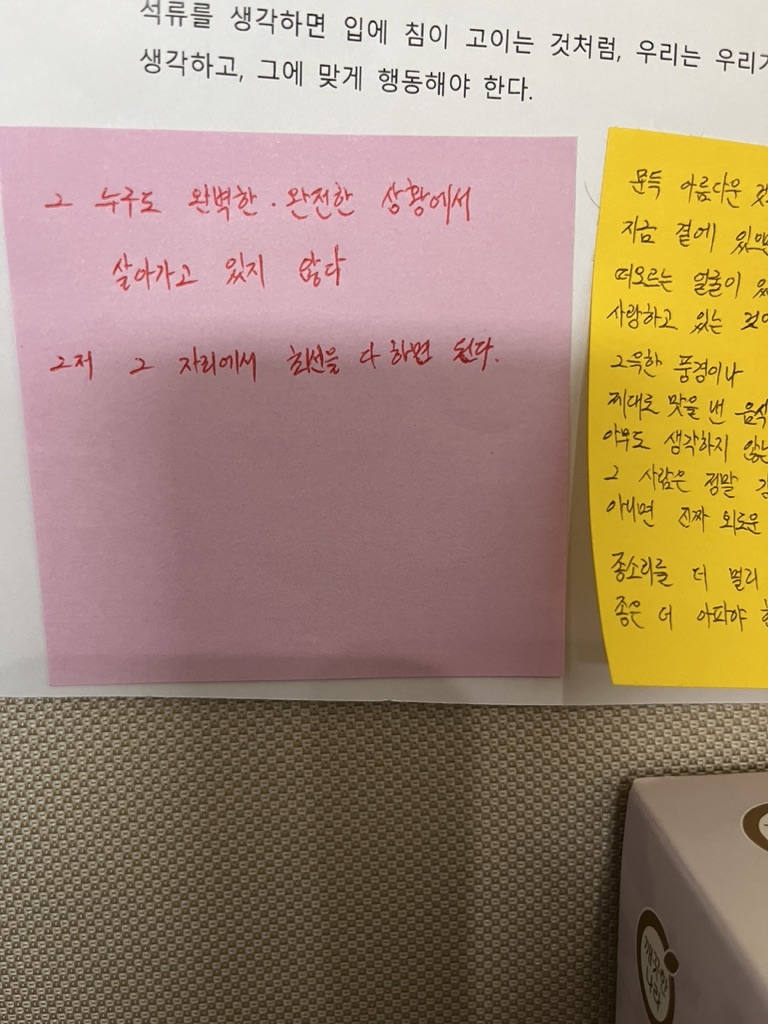 석류를 생각하면 입에 침이 고이는 것처럼, 우리는 우리가
생각하고, 그에 맞게 행동해야 한다.
그 누구도 완벽한. 완전한 상황에서
살아가고 있지 않다
그저 그 자리에서 최선을 다 하면 된다.
문득 아름다운 것
지금 곁에 있으면
떠오르는 얼굴이 있
사랑하고 있는 것이
그윽한 풍경이나
제대로 맛을 낸 음식
아무도 생각하지 않는
그 사람은 정말 강
아니면 진짜 외로운
종소리를 더 멀리
종은 더 아파야 한
깨끗한
나라